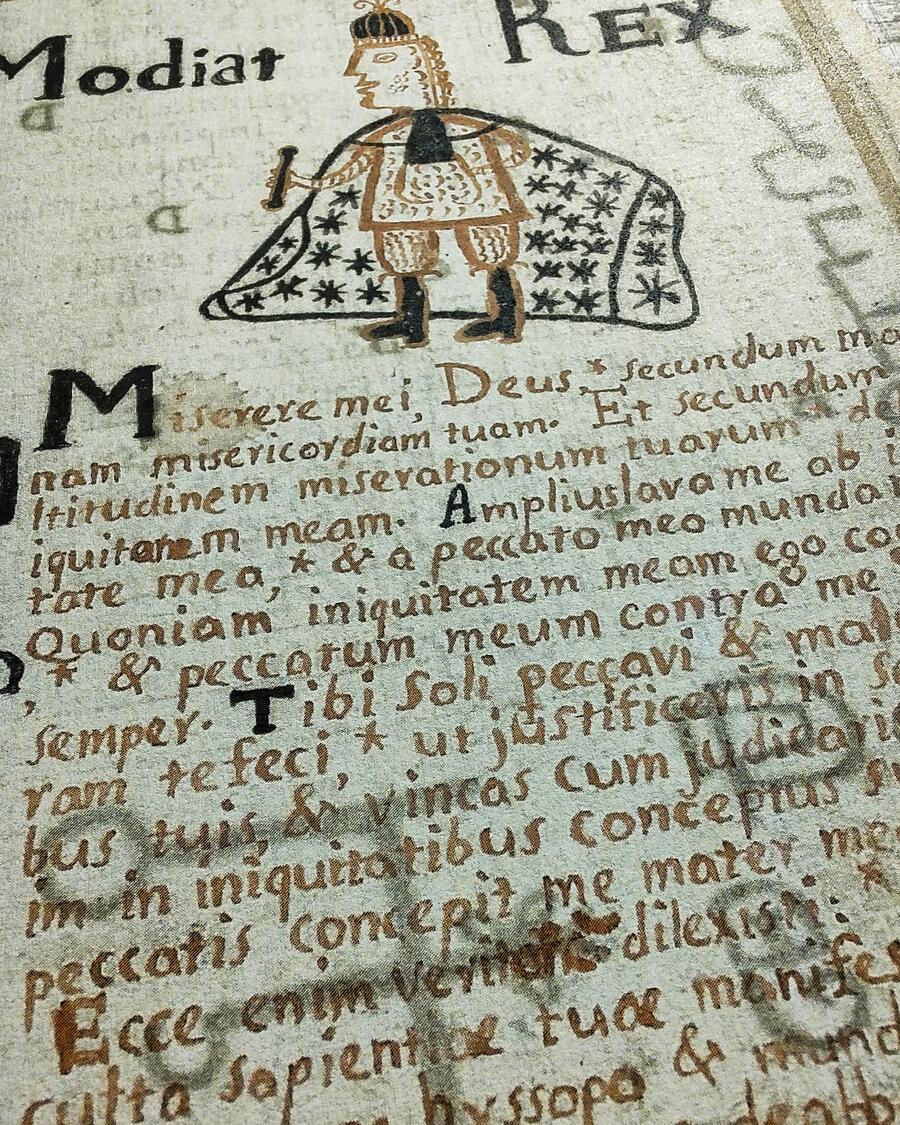 Modiat REX
Miserere mei, Deus,* secundum
nam misericordiam tuam. Et secundum
ltitudinem miserationum tuarum * de
iquitatem meam. Ampliuslavame ab i
tate mea,* & a peccato meo munda
Quoniam iniquitatem meam ego co
* & peccatum meum contra me
semper. Tibi soli peccavi & mal
ram te feci,* ut justificeris in se
bus tuis, & vincas cum judicaris
im in iniquitatibus conceptus su
peccatis concepit me mater me
Ecce enim dilexisti: *
culta sapientiæ tuæ manifes
hyssopo & mund
dealb